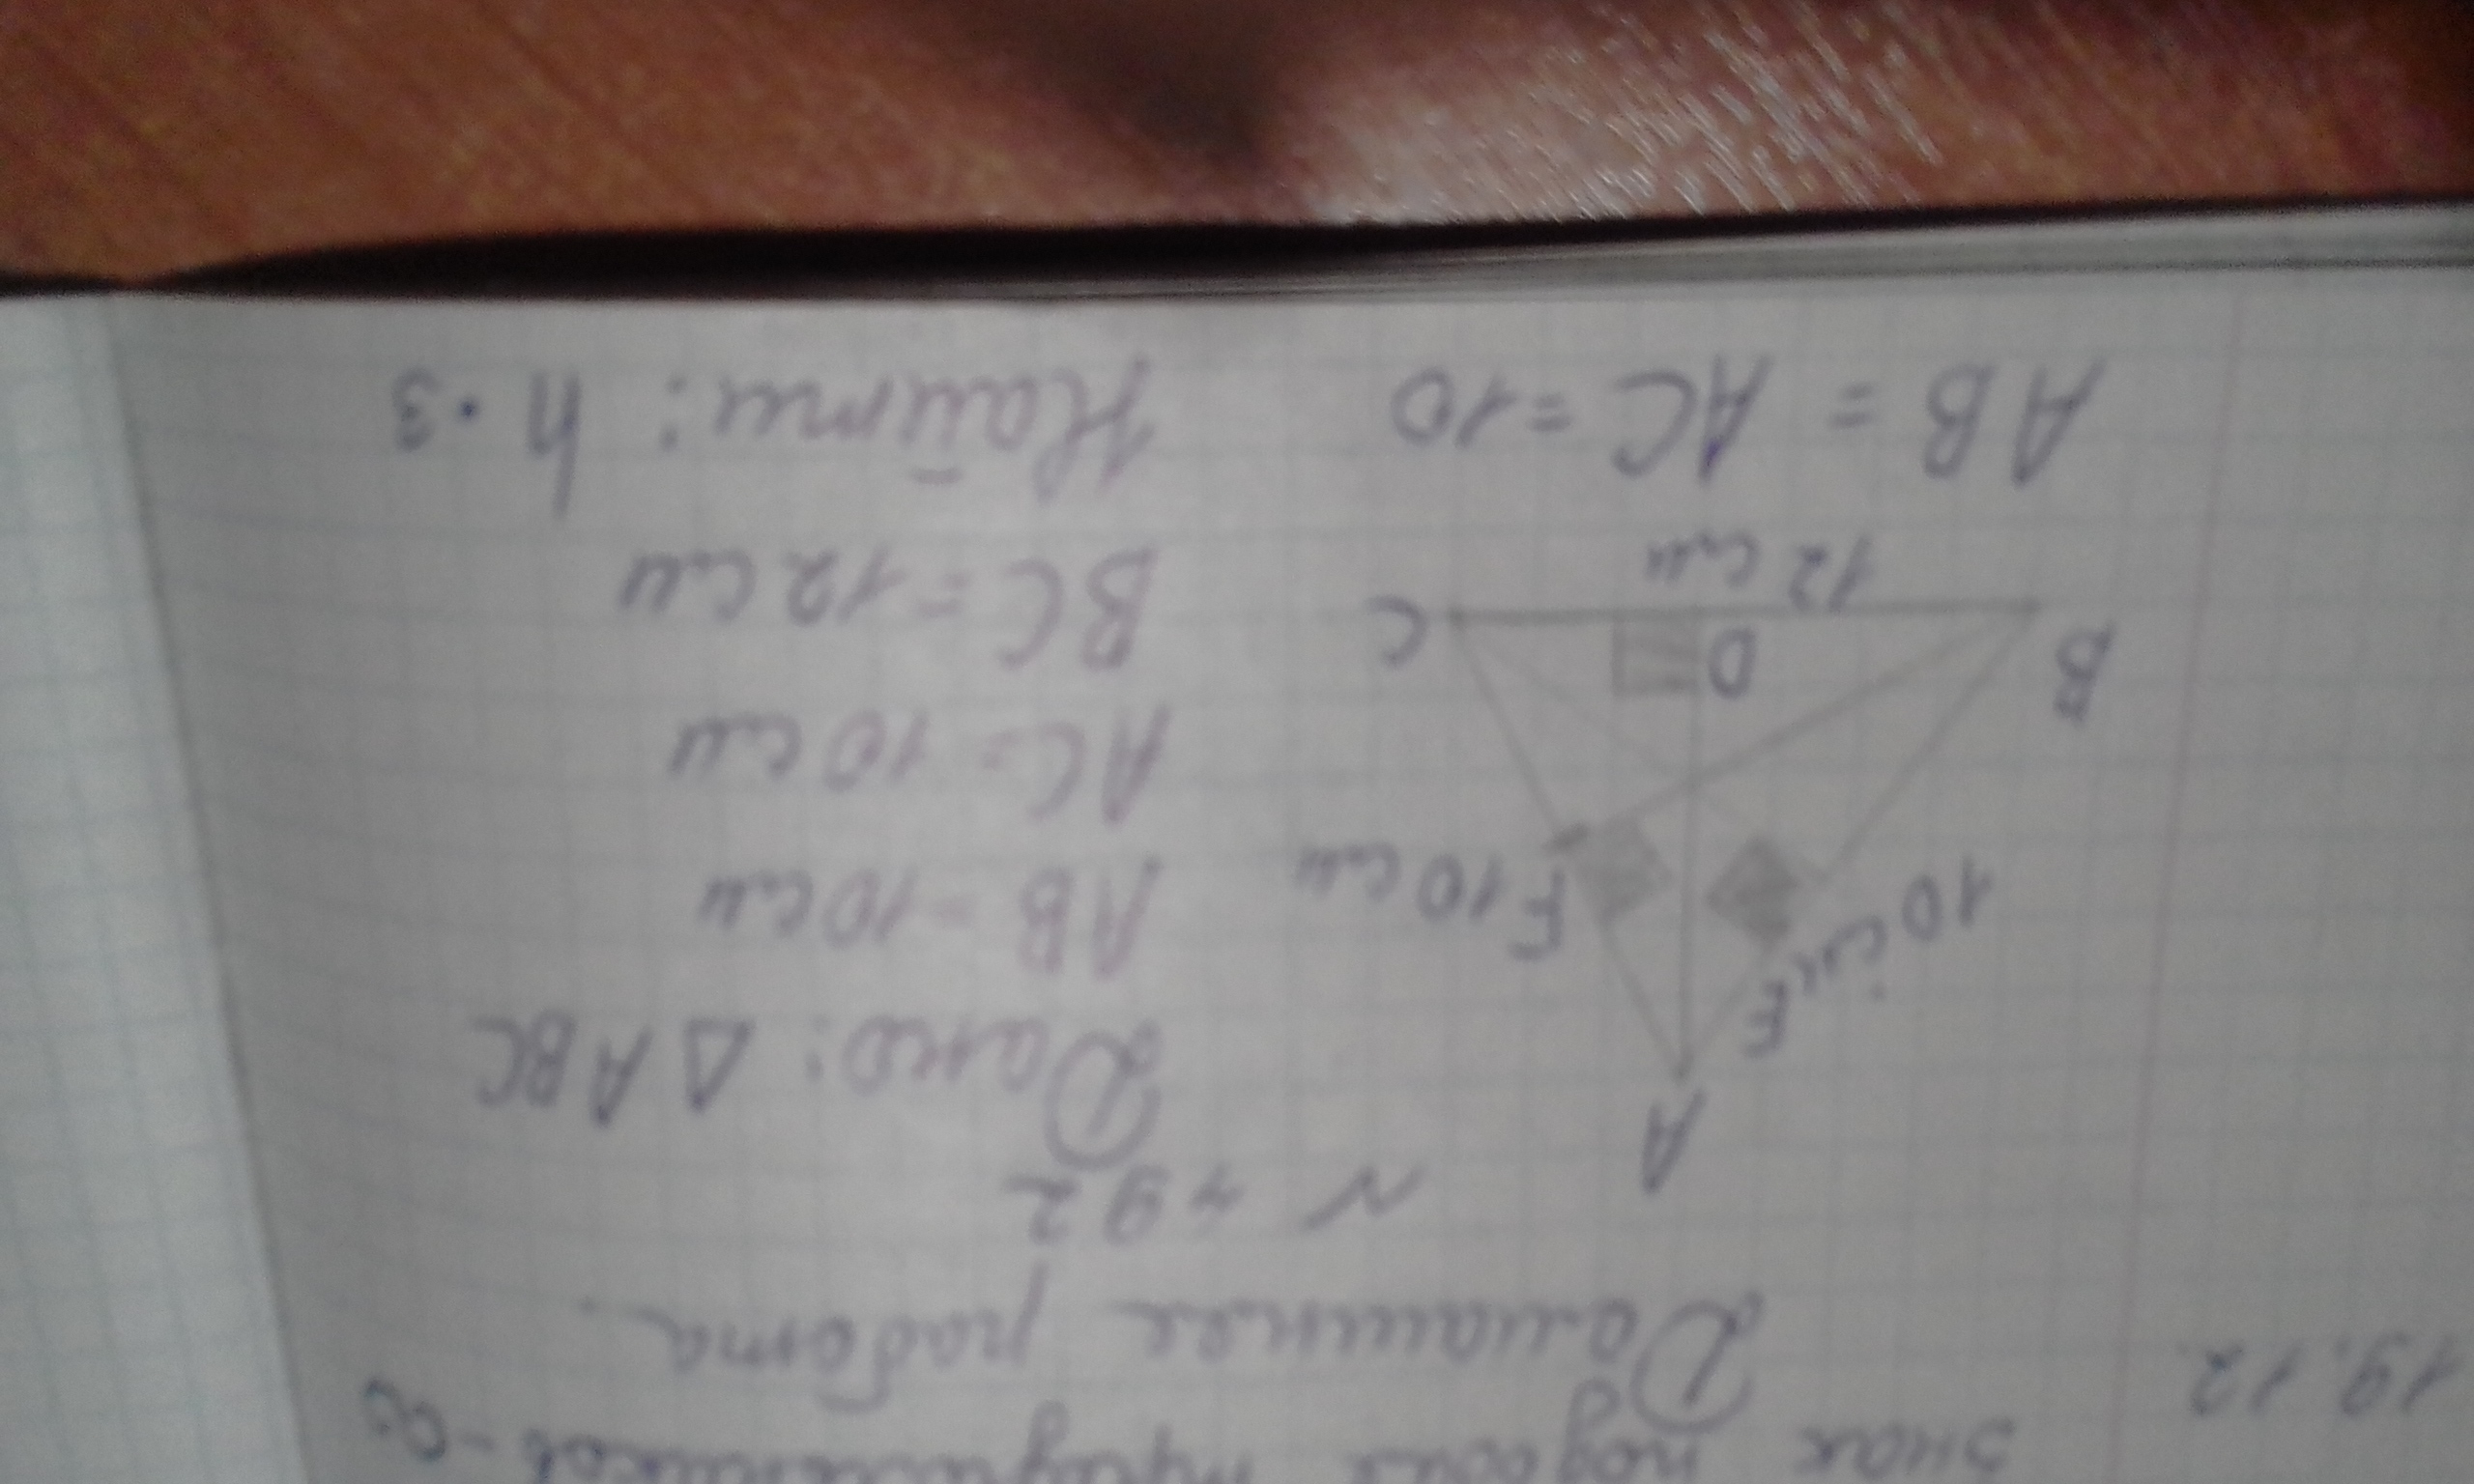 знак подобия треугольников -
19.12.
Домашняя работа.
N 792
A
Дано: Δ ABC
E
10 см
F 10 см
AB - 10 см
AC - 10 см
B
D
C
BC = 12 см
12 см
AB = AC = 10
Найти: h · 3